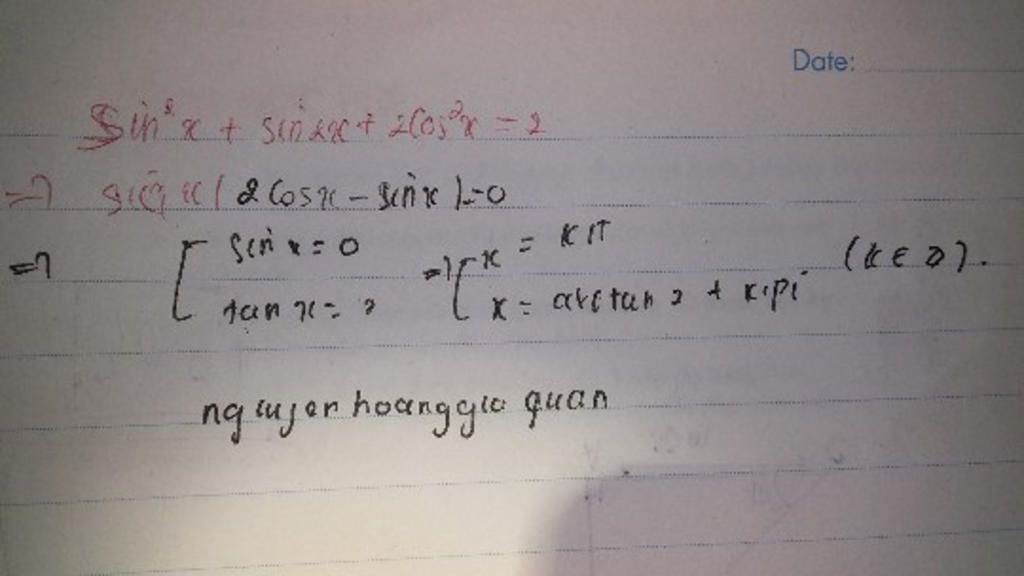 Date:
Sin²x + sin2x + 2Cos²x = 2
=> sin x ( 2 Cosx - sinx ) = 0
=> [ sin x = 0 => [ x = kπ (k ∈ Z).
tan x = 2 x = arctan 2 + k.pi
nguyen hoang gia quan